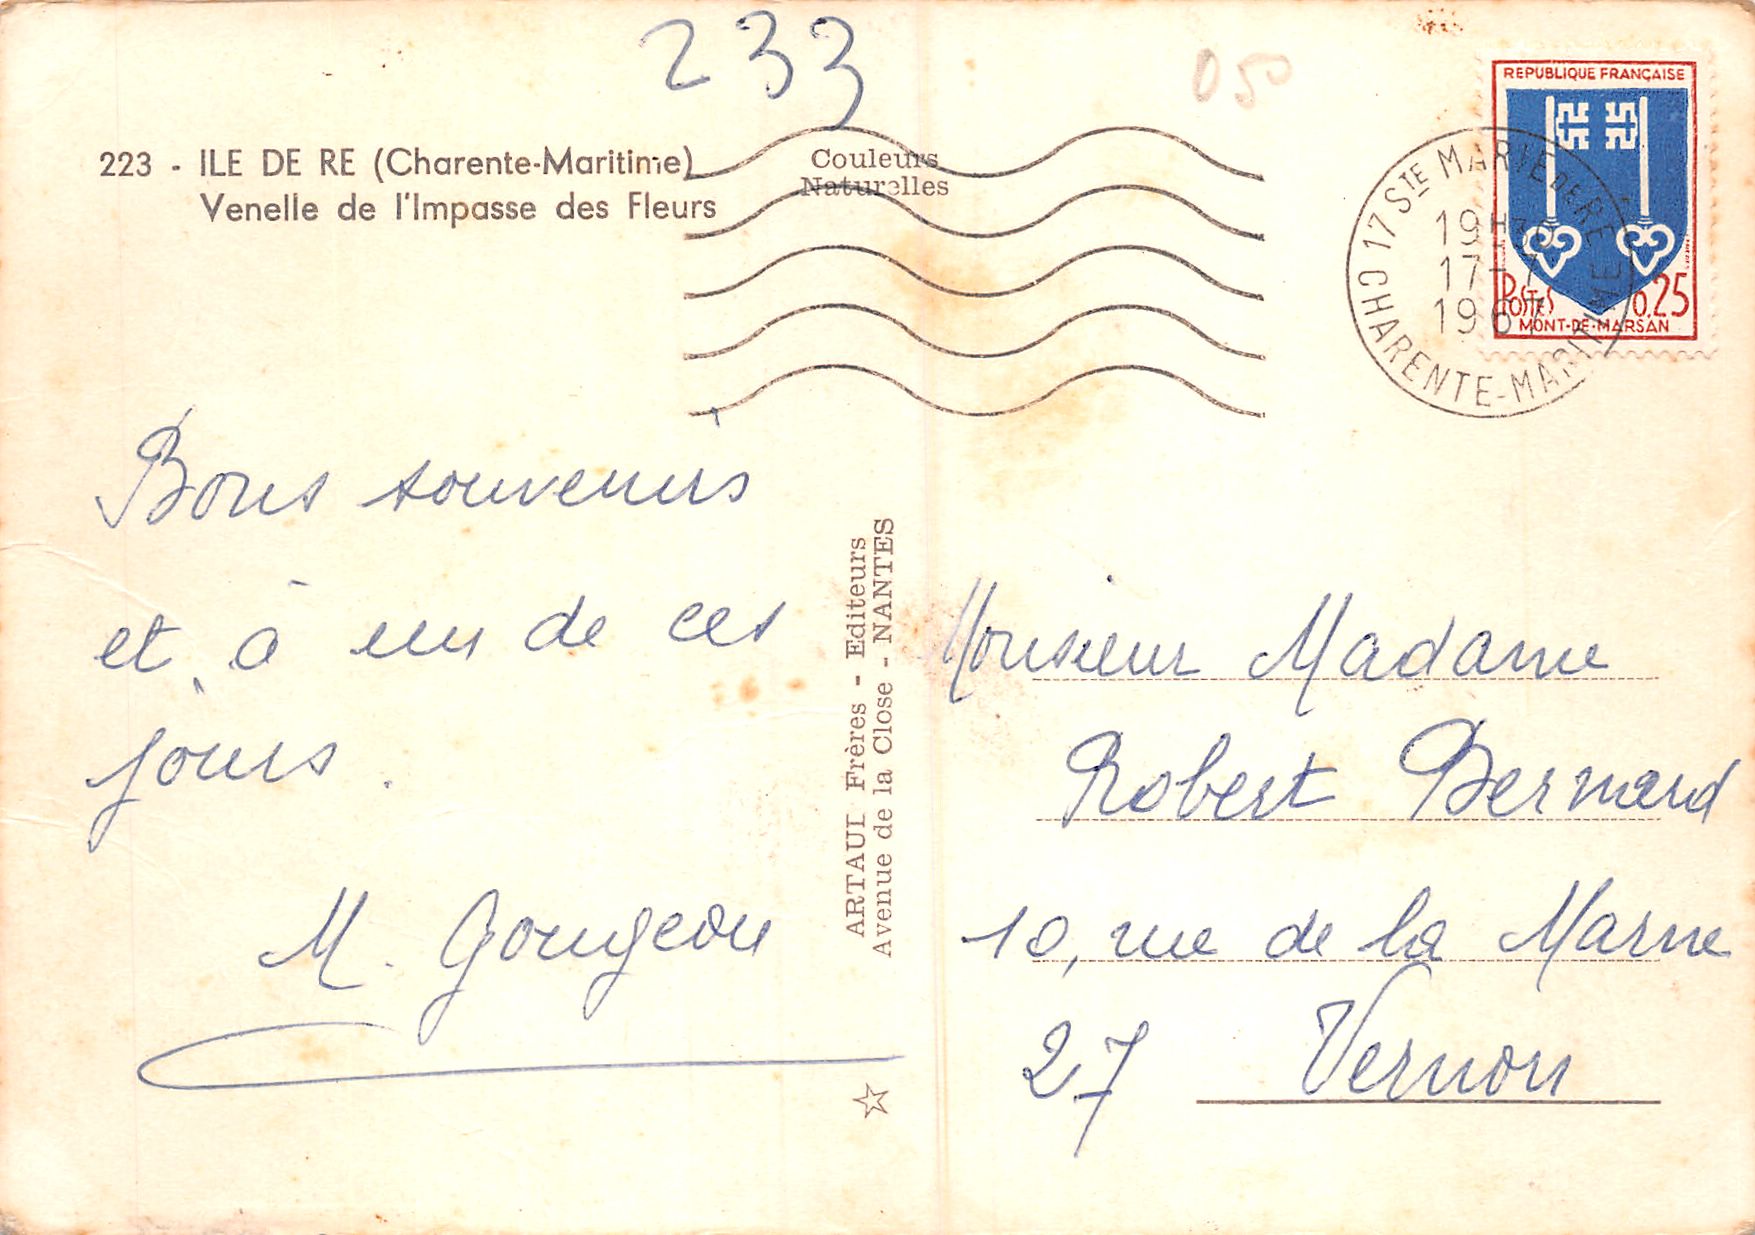 233
050
223 - ILE DE RE (Charente-Maritime)
Venelle de l'Impasse des Fleurs
Couleurs
Naturelles
REPUBLIQUE FRANÇAISE
POSTES 0.25
MONT-DE-MARSAN
17 STE MARIE DE RE
19H30
17-7
1967
CHARENTE-MARITIME
Bons souvenirs
et à un de ces
jours.
M. Gougeon
ARTAUD Frères - Editeurs
Avenue de la Close - NANTES
Monsieur Madame
Robert Bernard
10, rue de la Marne
27 Vernon